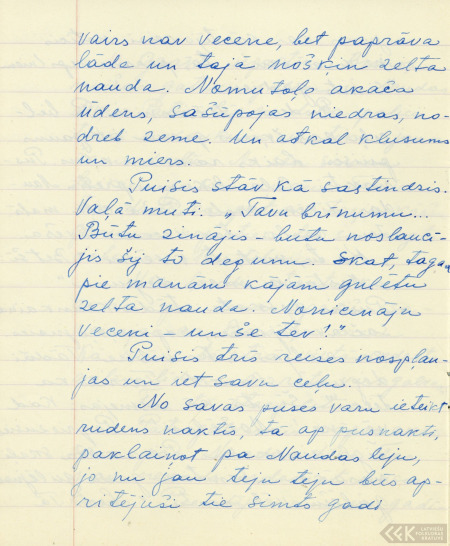 vairs nav vecene, bet paprāva
lāde un tajā nošķin zelta
nauda. Nomutuļo akača
ūdens, sašūpojas niedras, no-
dreb zeme. Un atkal klusums
un miers.
Puisis stāv kā sastindzis.
Vaļā muti. „Tavu brīnumu...
Būtu zinājis – būtu noslaucī-
jis šij to degunu. Skat, tagad
pie manām kājām gulētu
zelta nauda. Nonicināju
veceni – un še tev!"
Puisis trīs reizes nospļau-
jas un iet savu ceļu.
No savas puses varu ieteikt
rudens naktīs, tā ap pusnakti,
paklaiņot pa Naudas leju,
jo nu jau teju teju būs ap-
ritējuši tie simts gadi
LATVIEŠU
FOLKLORAS
KRĀTUVE